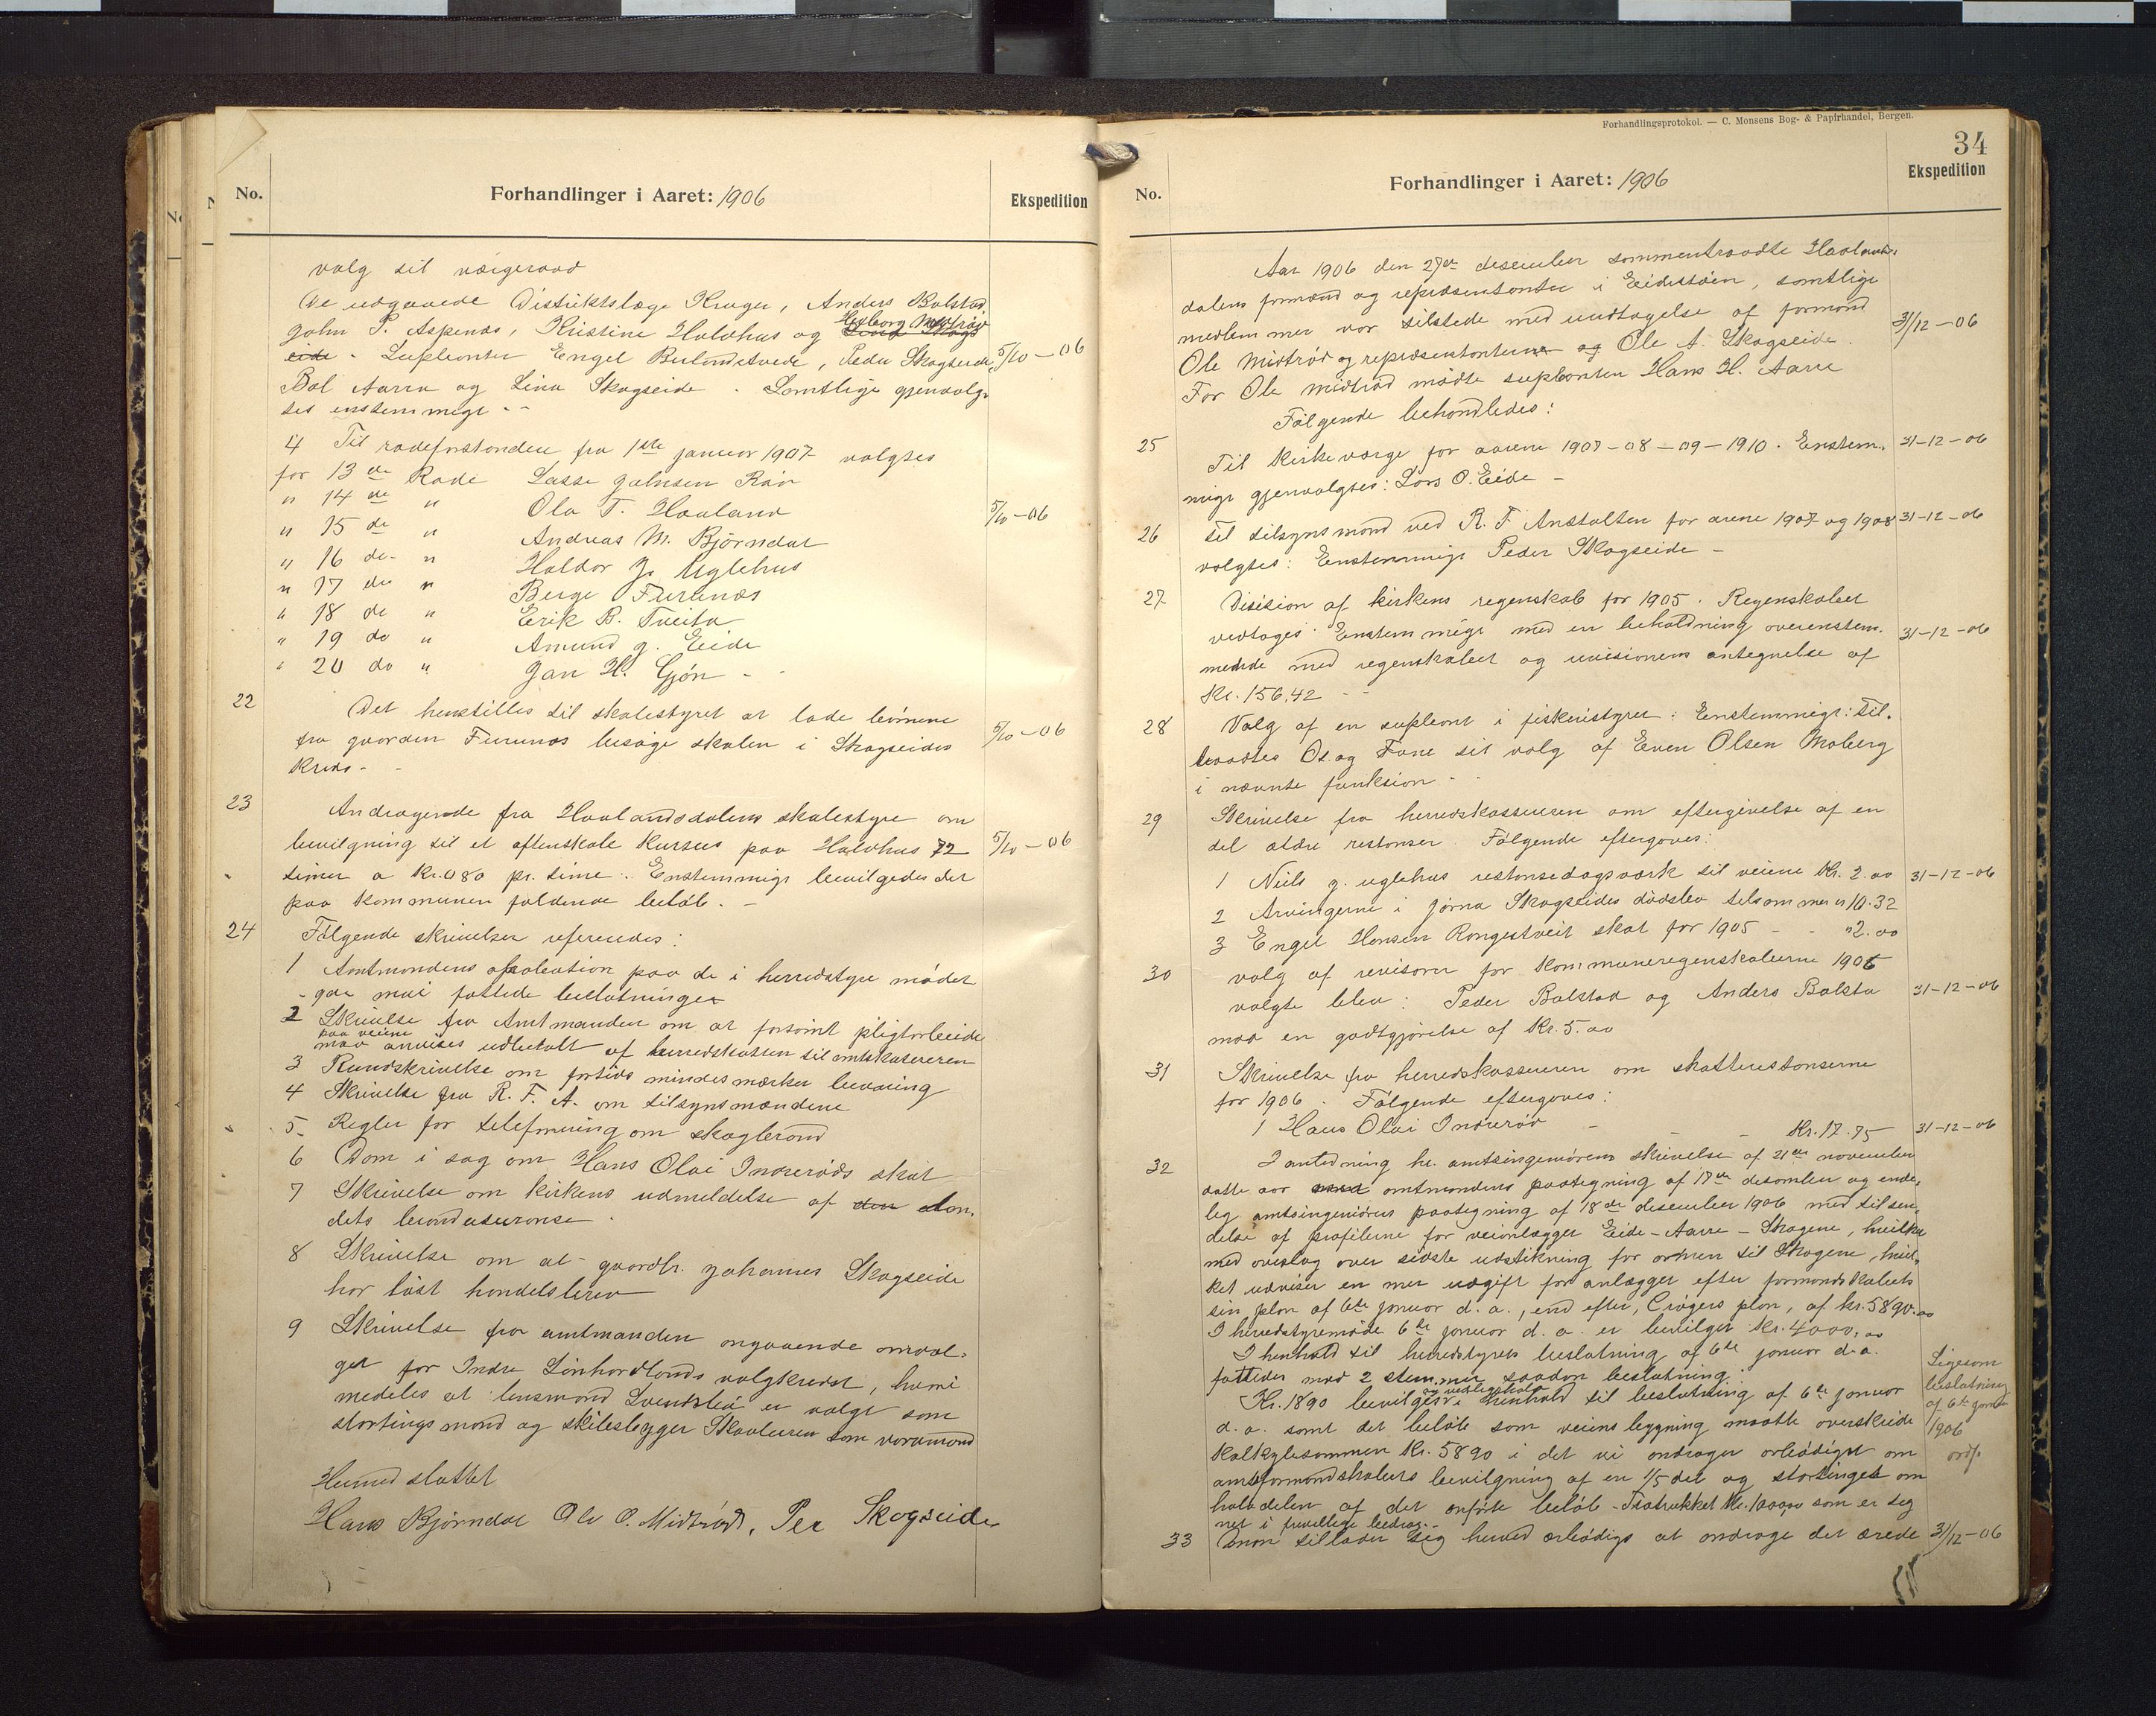 No.
Forhandlinger i Aaret: 1906
Ekspedition
valg til værgeraad
De udgaaede Distriktslæge Kruger, Anders Bolstad
John P. Aspenæs, Kristine Holdhus og Hesborg Midtrød
eide. Suplianter Engel Peder Skogseide, 5/10-06
Bol Aarra og Lina Skogseide. Samtlige gjenvalg-
tes enstemmigt.
4 Til rodeforstandere fra 1ste januar 1907 valgtes
for 13de Rode Lasse Johnsen Røn
" 14de " Ola T. Havland 5/10-06
" 15de " Andreas M. Bjørndal
" 16de " Haldor J. Uglehus
" 17de " Berge Furunæs
" 18de " Erik B. Tveita
" 19de " Amund J. Eide
" 20de " Jan H. Gjøn
22 Det henstilles til skolestyret at lade børnene
fra gaarden Furunæs besøge skolen i Skogseides 5/10-06
Kreds.
23 Andragende fra Haalandsdalens skolestyre om
bevilgning til et aftenskole kursus paa Holdhus 72 5/10-06
timer a Kr. 0.80 pr. time. Enstemmigt bevilgedes det
paa kommunen faldende beløb.
24 Følgende skrivelser refereredes:
1 Amtmandens aprobation paa de i herredstyre mødet
9de mai fattede beslutninger
2 Skrivelse fra Amtmanden om at forsømt pligtarbeide
paa veiene
maa anvises udbetalt af herredskassen til amtskasereren
3 Rundskrivelse om fortids mindesmærkers bevaring
4 Skrivelse fra R. F. A. om tilsynsmændene
5 Regler for telefonering om skogbrand
6 Dom i sag om Hans Olai Indrerøds skat
7 Skrivelse om kirkens udmeldelse af den lan-
dets brandasuranse.
8 Skrivelse om at gaardbr. Johannes Skogseide
har løst handelsbrev
9 Skrivelse fra amtmanden angaaende omval-
get for Indre Sønhordlands valgkreds, hvori
medeles at lensmand Svendsbø er valgt som
stortingsmand og som varamand
Hermed sluttet
Hans Bjørndal Ole O. Midtrød, Per Skogseide
Forhandlingsprotokol. — C. Monsens Bog- & Papirhandel, Bergen.
34
No.
Forhandlinger i Aaret: 1906
Ekspedition
Aar 1906 den 27de desember sammentraadte Haalands-
dalens formænd og repræsentanter i Eidestøen, samtlige
medlemmer var tilstede med undtagelse af formand 31/12-06
Ole Midtrød og repræsentanterne og Ole A. Skogseide.
For Ole Midtrød mødte suplianten Hans H. Aarre
Følgende behandledes:
25 Til kirkeværge for aarene 1907-08-09-1910. Enstem- 31-12-06
migt gjenvalgtes: Lars O. Eide
26 Til tilsynsmand ved R. F. Anstalten for arene 1907 og 1908 31-12-06
valgtes: Enstemmigt Peder Skogseide
27 Disision af kirkens regenskab for 1905. Regenskabet
vedtages Enstemmigt med en beholdning overenstem- 31-12-06
mende med regenskabet og revisionens antegnelse af
Kr. 156,42
28 Valg af en supleant i fiskeristyret: Enstemmigt: Til-
traadtes Os og Fane sit valg af Even Olsen Moberg
i nævnte funksion.
29 Skrivelse fra herredskassereren om eftergivelse af en
del ældre restanser. Følgende eftergaves:
1 Niels J. Uglehus restanse dagsværk til veiene Kr. 2.00 31-12-06
2 Arvingerne i Jørna Skogseides dødsbo tilsammen " 10.32
3 Engel Hansen Rongestveit skat for 1905 - - " 2.00
30 Valg af revisorer for kommuneregenskaberne 1906
valgte blev: Peder Bolstad og Anders Bolstad 31-12-06
mod en godtgjørelse af Kr. 5.00
31 Skrivelse fra herredskassereren om skatterestanserne
for 1906. Følgende eftergaves:
1 Hans Olai Indrerød - - - Kr. 17.75 31-12-06
32 I anledning hr. amtsingeniørens skrivelse af 21de november
dette aar amtmandens paategning af 17de desember og ende-
lig amtsingeniørens paategning af 18de desember 1906 med tilsen-
delse af profilerne for veianlægget Eide-Aarre-Skogene, hvilke
med overslag over sidste udstikning for armen til Skogene, hvil-
ket udviser en mer udgift for anlægget efter formandskabets
sin plan af 6te januar d. a., end efter, Crøgers plan, af kr. 5890.00
I herredstyremøde 6te januar d. a. er bevilget Kr. 4000,00
I henhold til herredstyrets beslutning af 6te januar d. a.
fattedes mod 2 stemmer saadan beslutning:
Kr. 1890 bevilges i henhold til beslutning af 6te januar
og vedligehold
d. a. samt det beløb som veiens bygning maatte overskride
Kalkylesummen Kr. 5890 i det vi andrager ærbødigst om
amtsformandskabets bevilgning af en 1/5 del og stortinget om
halvdelen af det anførte beløb - Fratrukket Kr. 1000,00 som er teg
net i frivillige bidrag.
Ligesom
beslutning
af 6te januar
1906
ordf.
33 Man tillader sig herved ærbødigst at andrage det ærede 31/12-06